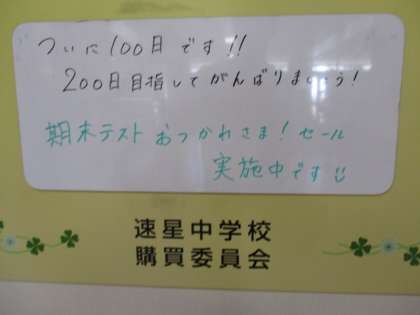 ついに100日です!!
200日目指してがんばりましょう!
期末テストおつかれさま!セール
実施中です
速星中学校
購買委員会